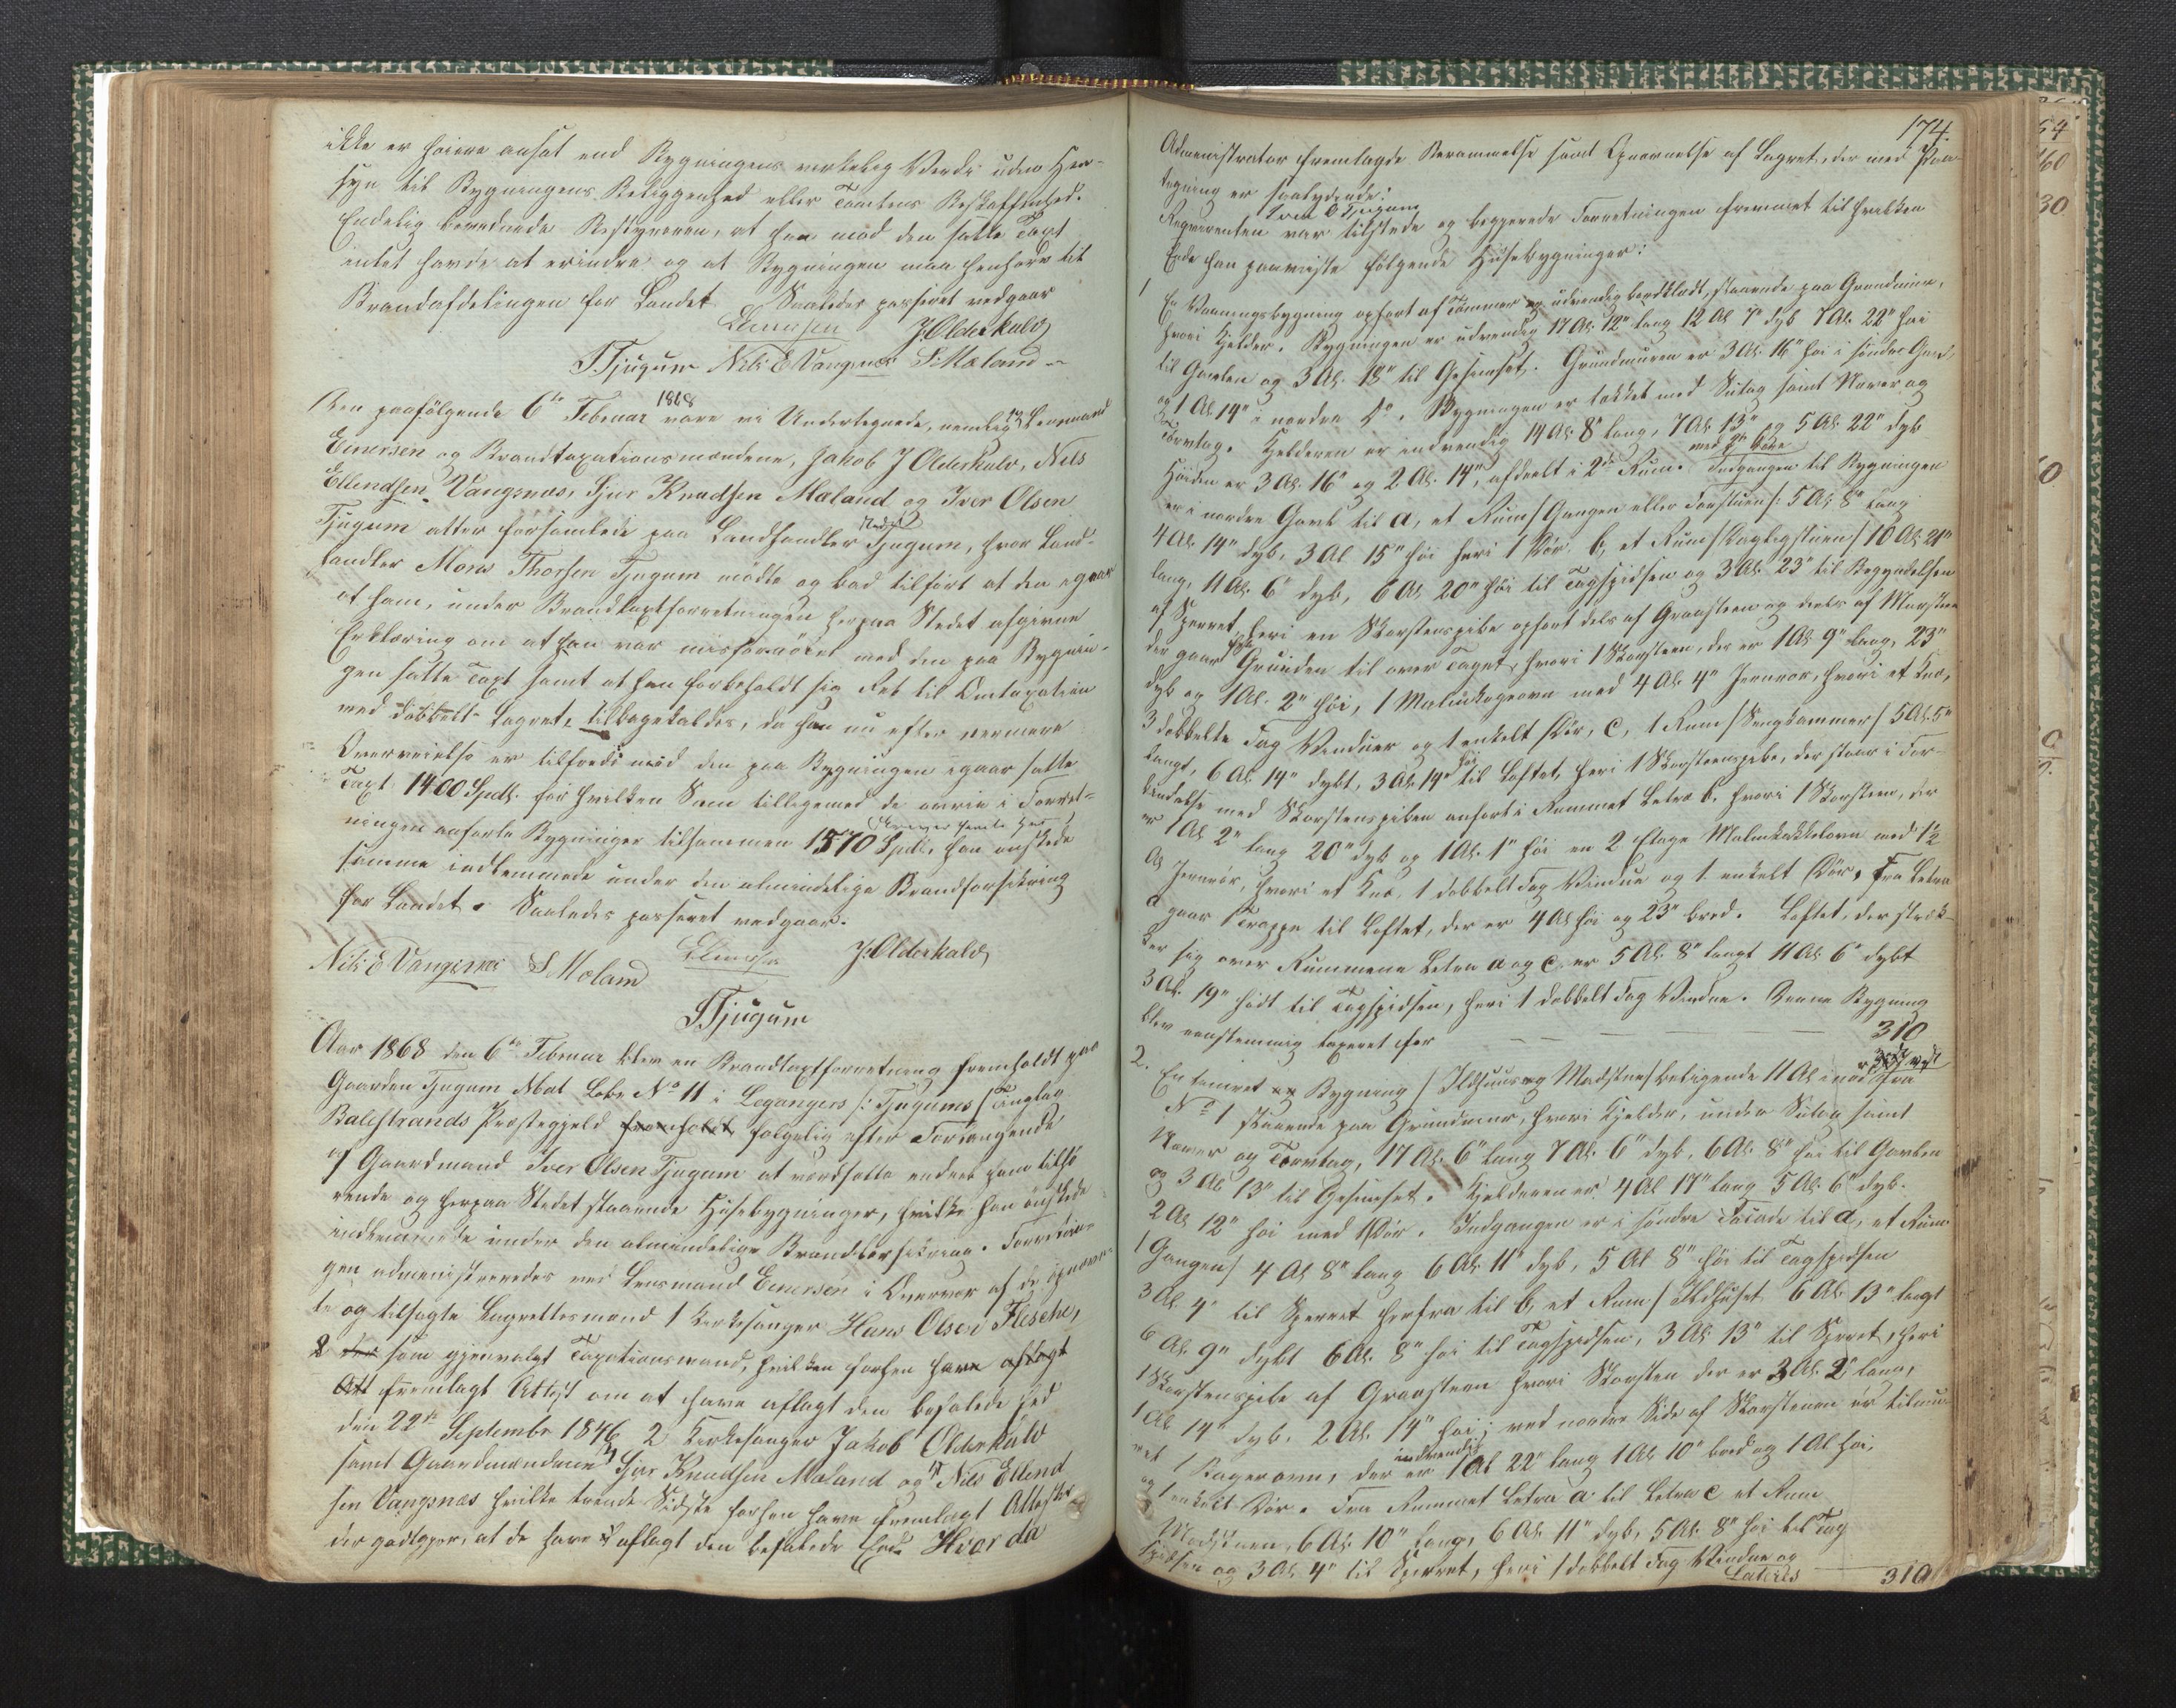 ikke er høiere ansat end Bygningens virkelig Værdi uden Hen-
syn til Bygningens Beliggenhed eller Tomtens Beskaffenhed.
Endelig bemærkede Bestyreren, at han mod den satte Taxt
intet havde at erindre og at Bygningen maa henføres til
Brandafdelingen for Landet. Saaledes passeret vedgaar
Einersen J. Olderkalv
T Tjugum Nils E Vangsnæs S. Mæland
Den paafølgende 6te Februar 1868 vare vi Undertegnede, nemlig Lensmand
Einersen og Brandtaxationsmændene, Jakob J Olderkalv, Nils
Ellendsen Vangsnæs, Sjur Knudsen Mæland og Iver Olsen
Tjugum atter forsamlede paa Landhandler Tjugum, hvor Land-
handler Mons Thorsen Tjugum mødte og bad tilført at den igaar
af ham, under Brandtaxtforretningen her paa Stedet afgivne
Erklæring om at han var misfornøiet med den paa Bygnin-
gen satte Taxt samt at han forbeholdt sig Ret til Omtaxation
med dobbelt Lagret, tilbagekaldes, da han nu efter nærmere
Overveielse er tilfreds med den paa Bygningen igaar satte
Taxt 1400 Spdlr. for hvilken Sum tilligemed de øvrige i Forret-
ningen anførte Bygninger tilsammen 1570 Spdlr. han ønskede
samme indlemmede under den almindelige Brandforsikring
for Landet. Saaledes passeret vedgaar.
Nils E Vangsnæs S Mæland Einersen J. Olderkalv
T Tjugum
Aar 1868 den 6te Februar blev en Brandtaxtforretning fremholdt paa
Gaarden Tjugum Mat. Løbe No 11 i Leganger /: Tjugums / Tinglag
Balestrands Præstegjeld fremholdt følgelig efter Forlangende
af Gaardmand Iver Olsen Tjugum at værdsætte endeel ham tilhø
rende og her paa Stedet staaende Huusebygninger, hvilke han ønskede
indlemmede under den almindelige Brandforsikring. Forretnin-
gen administreredes ved Lensmand Einersen i Overvær af de opnævn-
te og tilsagte Lagrettesmænd 1 Kirkesanger Hans Olsen Flesche,
som gjenvalgt Taxationsmand, hvilken forhen have aflagt
fremlagt Attest om at have aflagt den befalede Eed
den 22de September 1846 2 Kirkesanger Jakob Olderkalv
samt Gaardmændene 3 Sjur Knudsen Mæland og 4 Nils Ellend
sen Vangsnæs hvilke tvende Sidste forhen have fremlagt Attester
der godtgjør, at de have aflagt den befalede Eed. Hvor da
174.
Administrator fremlagde Berammelse samt Opnævnelse af Lagret, der med Paa-
tegning er saalydende:
Iver O Tjugum
Reqvirenten var tilstede og begjerede Forretningen fremmet til hvilken
Ende han paaviste følgende Huusebygninger:
1 En Vaaningsbygning opført af Tømmer og udvendig bordklædt, staaende paa Grundmur,
hvori Kjelder. Bygningen er udvendig 17 Al. 12" lang 12 Al 7" dyb 7 Al. 22" høi
til Gavlen og 3 Al. 18" til Gesimset. Grundmuren er 3 Al. 16" høi i søndre Gavl,
og 1 Al 14" i nordre Do. Bygningen er tækket med Sutag samt Næver og
Torvtag. Kjelderen er indvendig 14 Al. 8" lang, 7 Al. 13" og 5 Al. 22" dyb
Høiden er 3 Al. 16" og 2 Al. 14", afdeelt i 2de Rum. med 2de Døre Indgangen til Bygningen
er i nordre Gavl til a, et Rum / Gangen eller Forstuen /: 5 Al. 8" lang
4 Al. 14" dyb, 3 Al 15" høi heri 1 Dør. b, et Rum / Dagligstuen / 10 Al. 21"
lang, 11 Al. 6" dyb, 6 Al. 20" høi til Tagspidsen og 3 Al. 23" til Begyndelsen
af Sperret, heri en Skorstenspibe opført dels af Graasteen og deels af Muursteen
der gaar fra Grunden til over Taget, hvori 1 Skorsteen, der er 1 Al. 9" lang, 23"
dyb og 1 Al. 2" høi, 1 Malmkogeovn med 4 Al. 4" Jernrør, hvori et Knæ,
3 dobbelte Fag Vinduer og 1 enkelt Dør, c, 1 Rum / Sengkammer / 5 Al. 5"
langt, 6 Al. 14" dybt, 3 Al. 14" høi til Loftet, heri 1 Skorsteenspibe, der staar i For-
bindelse med Skorstenspiben anført i Rummet Letra b. hvori 1 Skorsteen, der
er 1 Al 2" lang 20" dyb og 1 Al. 1" høi en 2 Etage Malmkakkelovn med 1½
Al Jernrør, hvori et Knæ. 1 dobbelt Fag Vindue og 1 enkelt Dør. Fra Letra
a gaar 1 Trappe til Loftet, der er 4 Al høi og 23" bred. Loftet, der stræk-
ker sig over Rummene Letra a og c, er 5 Al. 8" langt 11 Al. 6" dybt
3 Al. 19" høit til Tagspidsen, heri 1 dobbelt Fag Vindue. Denne Bygning
blev eenstemmig taxeret for 310
2. En tømret Bygning / Ildhuus og Madstue / beligende 11 Al i fra
No 1 staaende paa Grundmur, hvori Kjelder, under Sutag samt
Næver og Torvtag, 17 Al. 6" lang 7 Al. 6" dyb, 6 Al. 8" høi til Gavlen
og 3 Al 13" til Gesimset. Kjelderen er 4 Al 17" lang 5 Al. 6" dyb.
2 Al 12" høi med 1 Dør. Indgangen er i søndre Facade til a, et Rum
/ Gangen / 4 Al 8" lang 6 Al. 11" dyb, 5 Al 8" høi til Tagspidsen
3 Al. 4" til Sperret herfra til b, et Rum / Ildhuset 6 Al. 13" langt
6 Al. 9" dybt 6 Al. 8" høi til Tagspidsen, 3 Al. 13" til Sperret, heri
1 Skorstenspibe af Graasteen hvori Skorsten der er 3 Al. 2" lang,
1 Al 14" dyb. 2 Al. 14" høi; ved nordre Side af Skorstenen er tilmu-
ret 1 Bagerovn, der er indvendig 1 Al 22" lang 1 Al 10" bred og 1 Al høi,
og 1 enkelt Dør. Fra Rummet Letra a til Letra c et Rum
Madstuen, 6 Al. 10" lang, 6 Al. 11" dyb, 5 Al. 8" høi til Tag
spidsen og 3 Al. 4" til Sperret, heri 1 dobbelt Fag Vindue og
Lateris 310